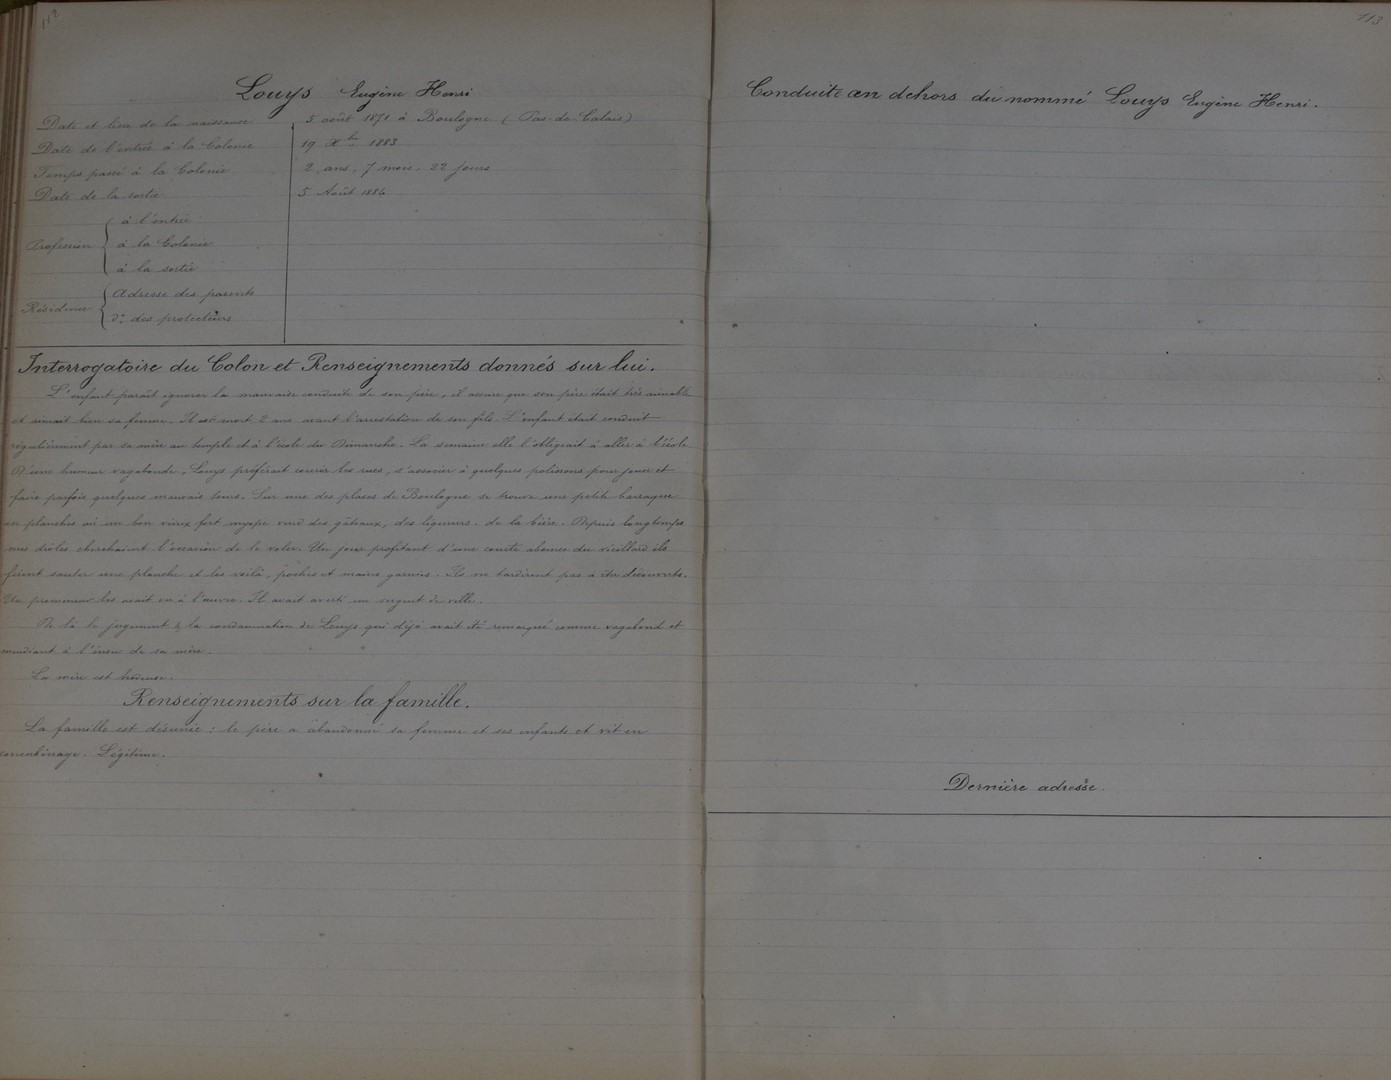 112
Louys Eugène Henri
Date et lieu de la naissance 5 août 1871 à Boulogne (Pas-de-Calais)
Date de l'entrée à la Colonie 19 Xbre 1883
Temps passé à la Colonie 2 ans, 7 mois, 22 jours
Date de la sortie 5 Août 1886
Profession
à l'entrée
à la Colonie
à la sortie
Résidence
Adresse des parents
do des protecteurs
Interrogatoire du Colon et Renseignements donnés sur lui.
L'enfant paraît ignorer la mauvaise conduite de son père, il assure que son père était très aimable
et aimait bien sa femme. Il est mort 2 ans avant l'arrestation de son fils. L'enfant était conduit
régulièrement par sa mère au temple et à l'école du Dimanche. La semaine elle l'obligeait à aller à l'école
D'une humeur vagabonde, Louys préférait courir les rues, s'associer à quelques polissons pour jouer et
faire parfois quelques mauvais tours. Sur une des places de Boulogne se trouve une petite barraque
en planches où un bon vieux fort myope vend des gâteaux, des liqueurs, de la bière. Depuis longtemps
nos drôles cherchaient l'occasion de le voler. Un jour profitant d'une courte absence du vieillard ils
firent sauter une planche et les voilà, poches et mains garnies. Ils ne tardèrent pas à être découverts.
Un promeneur les avait vu à l'œuvre. Il avait averti un sergent de ville.
De là le jugement & la condamnation de Louys qui déjà avait été remarqué comme vagabond et
mendiant à l'insu de sa mère.
La mère est
Renseignements sur la famille.
La famille est désunie : le père a abandonné sa femme et ses enfants et vit en
concubinage. Légitime.
113
Conduite en dehors du nommé Louys Eugène Henri.
Dernière adresse.